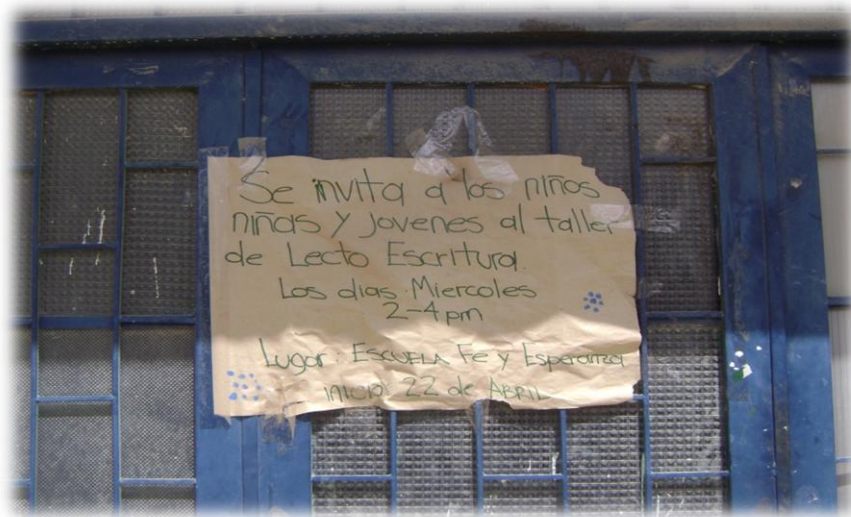 Se invita a los niños
niñas y jovenes al taller
de Lecto Escritura.
Los dias Miercoles
2-4 pm
Lugar: ESCUELA Fe y Esperanza
inicio: 22 de ABRIL